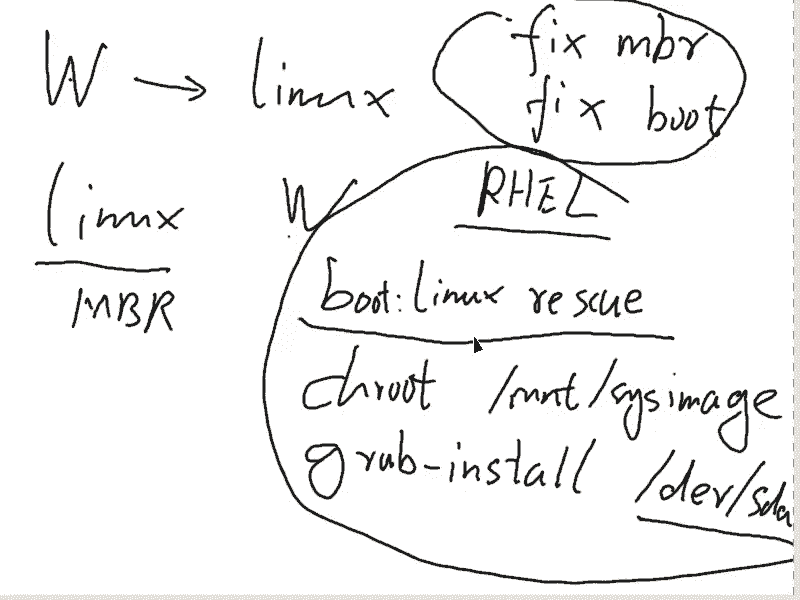 W → linux
fix mbr
fix boot
linux W
MBR
RHEL
boot: linux rescue
chroot /mnt/sysimage
grub-install /dev/sda